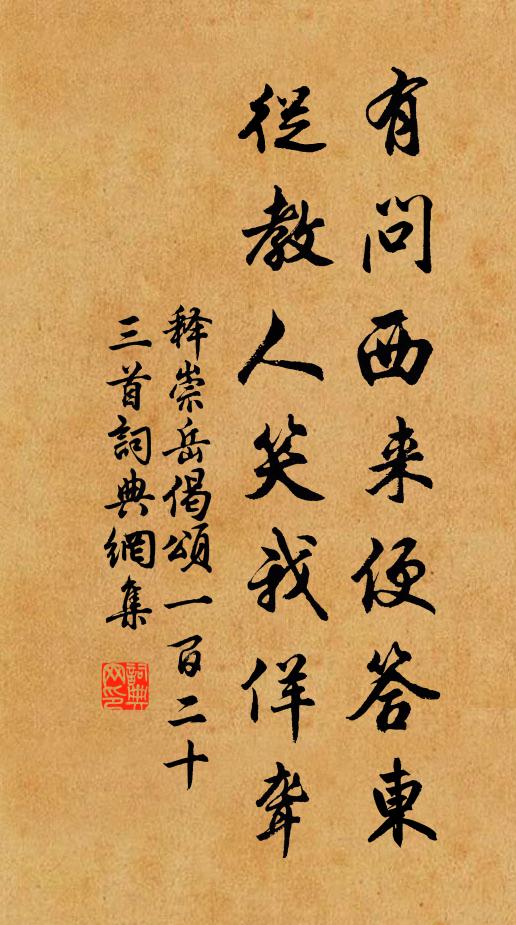 有問西来便答東
從教人笑我佯聾
释崇岳偈頌一百二十
三首詞典網集
詞典
网印